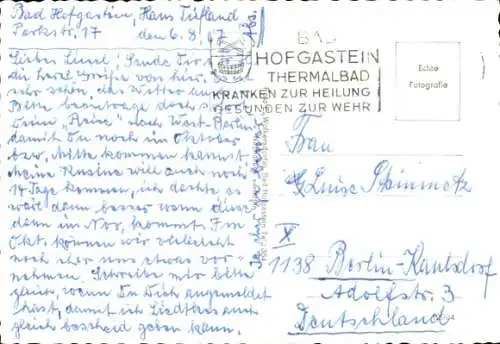 Bad Hofgastein, Haus Tirland
Parkstr. 17 den 6.8.67
Abs.:
Liebe Liesel! Sende Dir
die herzl. Grüße von hier. Es ist
sehr schön, das Wetter
Bitte beantrage doch
Deine "Reise" nach West-Berlin
damit Du noch im Oktober
bzw. Mitte kommen kannst.
Meine Kusine will auch noch
14 Tage kommen, ich dachte es
wäre dann besser wenn diese
dann im Nov. kommt. Im
Okt. können wir vielleicht
noch eher uns etwas vor-
nehmen. Schreibe mir bitte
gleich, wenn Du Dich angemeldet
hast, damit ich
gleich bescheid geben kann.
BAD
HOFGASTEIN
THERMALBAD
KRANKEN ZUR HEILUNG
GESUNDEN ZUR WEHR
Echte
Fotografie
Frau
Luise Steinmetz
X
1138 Berlin-Kaulsdorf
Adolfstr. 3
Deutschland